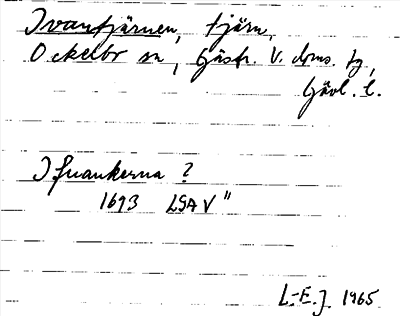 Ivantjärnen, tjärn,
Ockelbo sn, Gästr. V. doms. tg,
Gävl. l.
I fuankerna ?
1693 LSA V"
L-E.J. 1965